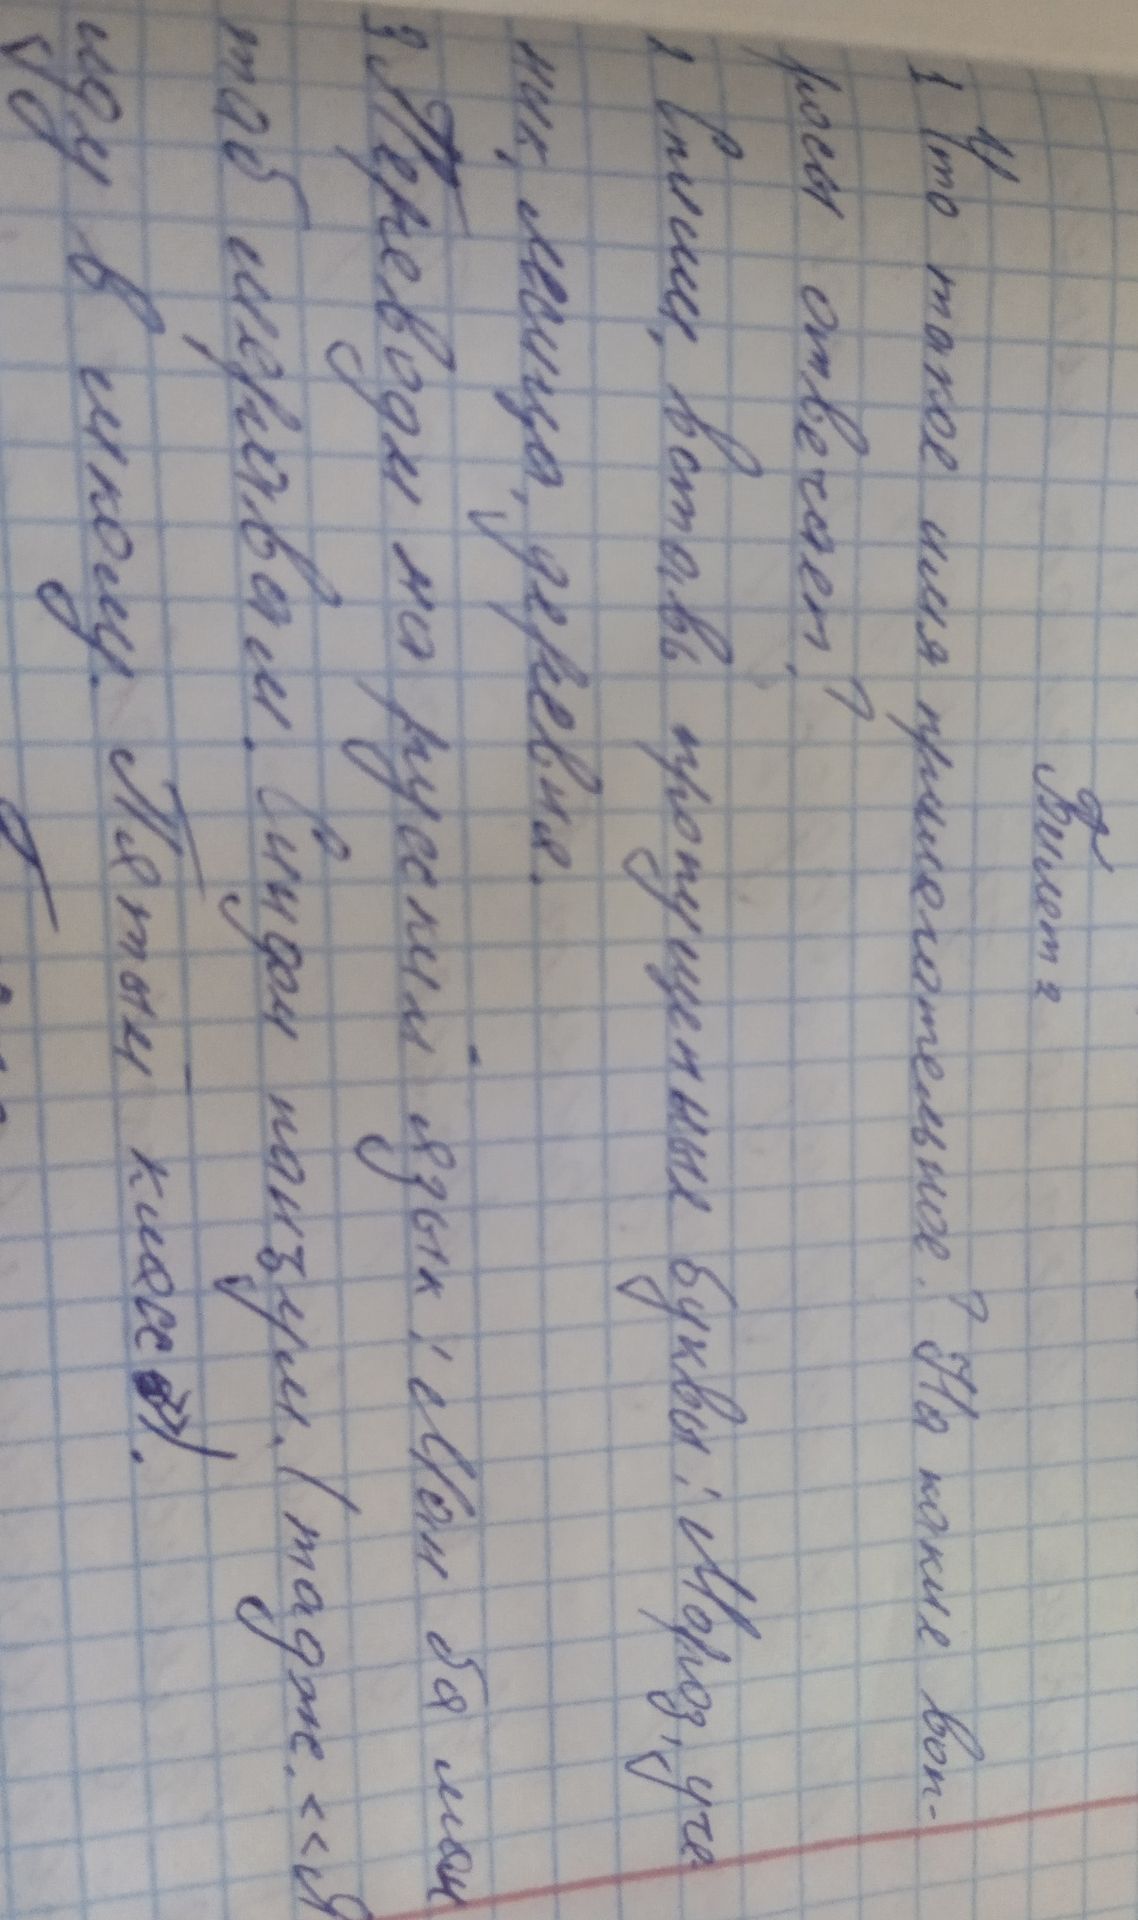 Билет 2
1 Что такое имя прилагательное? На какие воп-
росы отвечает?
2 Спиши, вставь пропущенные буквы: Мороз, уче
ник, лисица, деревня.
3 Переводи на русский язык: Ман ба мак
таб меравам. Синфи панҷум. (тадж. <<Я
иду в школу. Пятый класс>>).